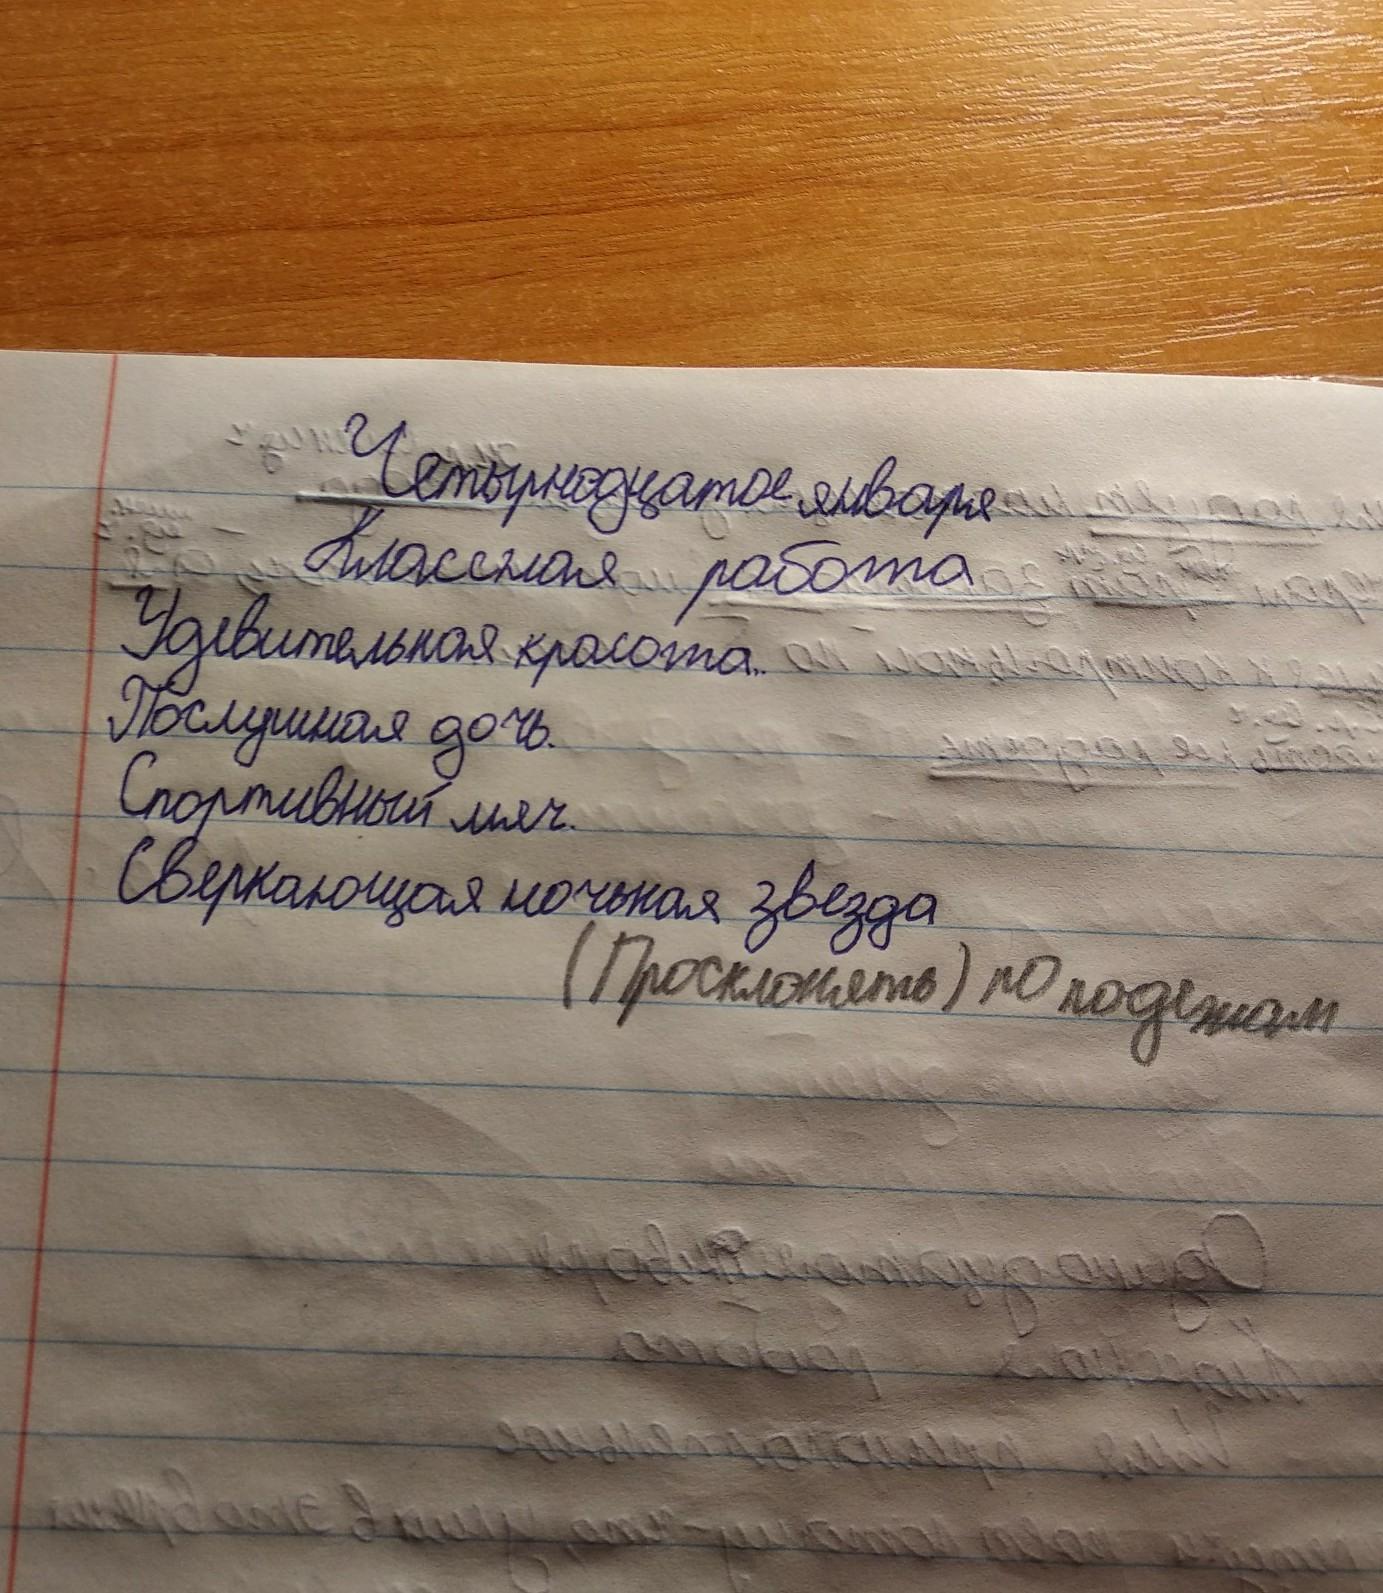 Четырнадцатое января
Классная работа
Удевительная красота..
Послушная дочь.
Спортивный мяч.
Сверкающая ночьная звезда
(Просклонять) по подежам